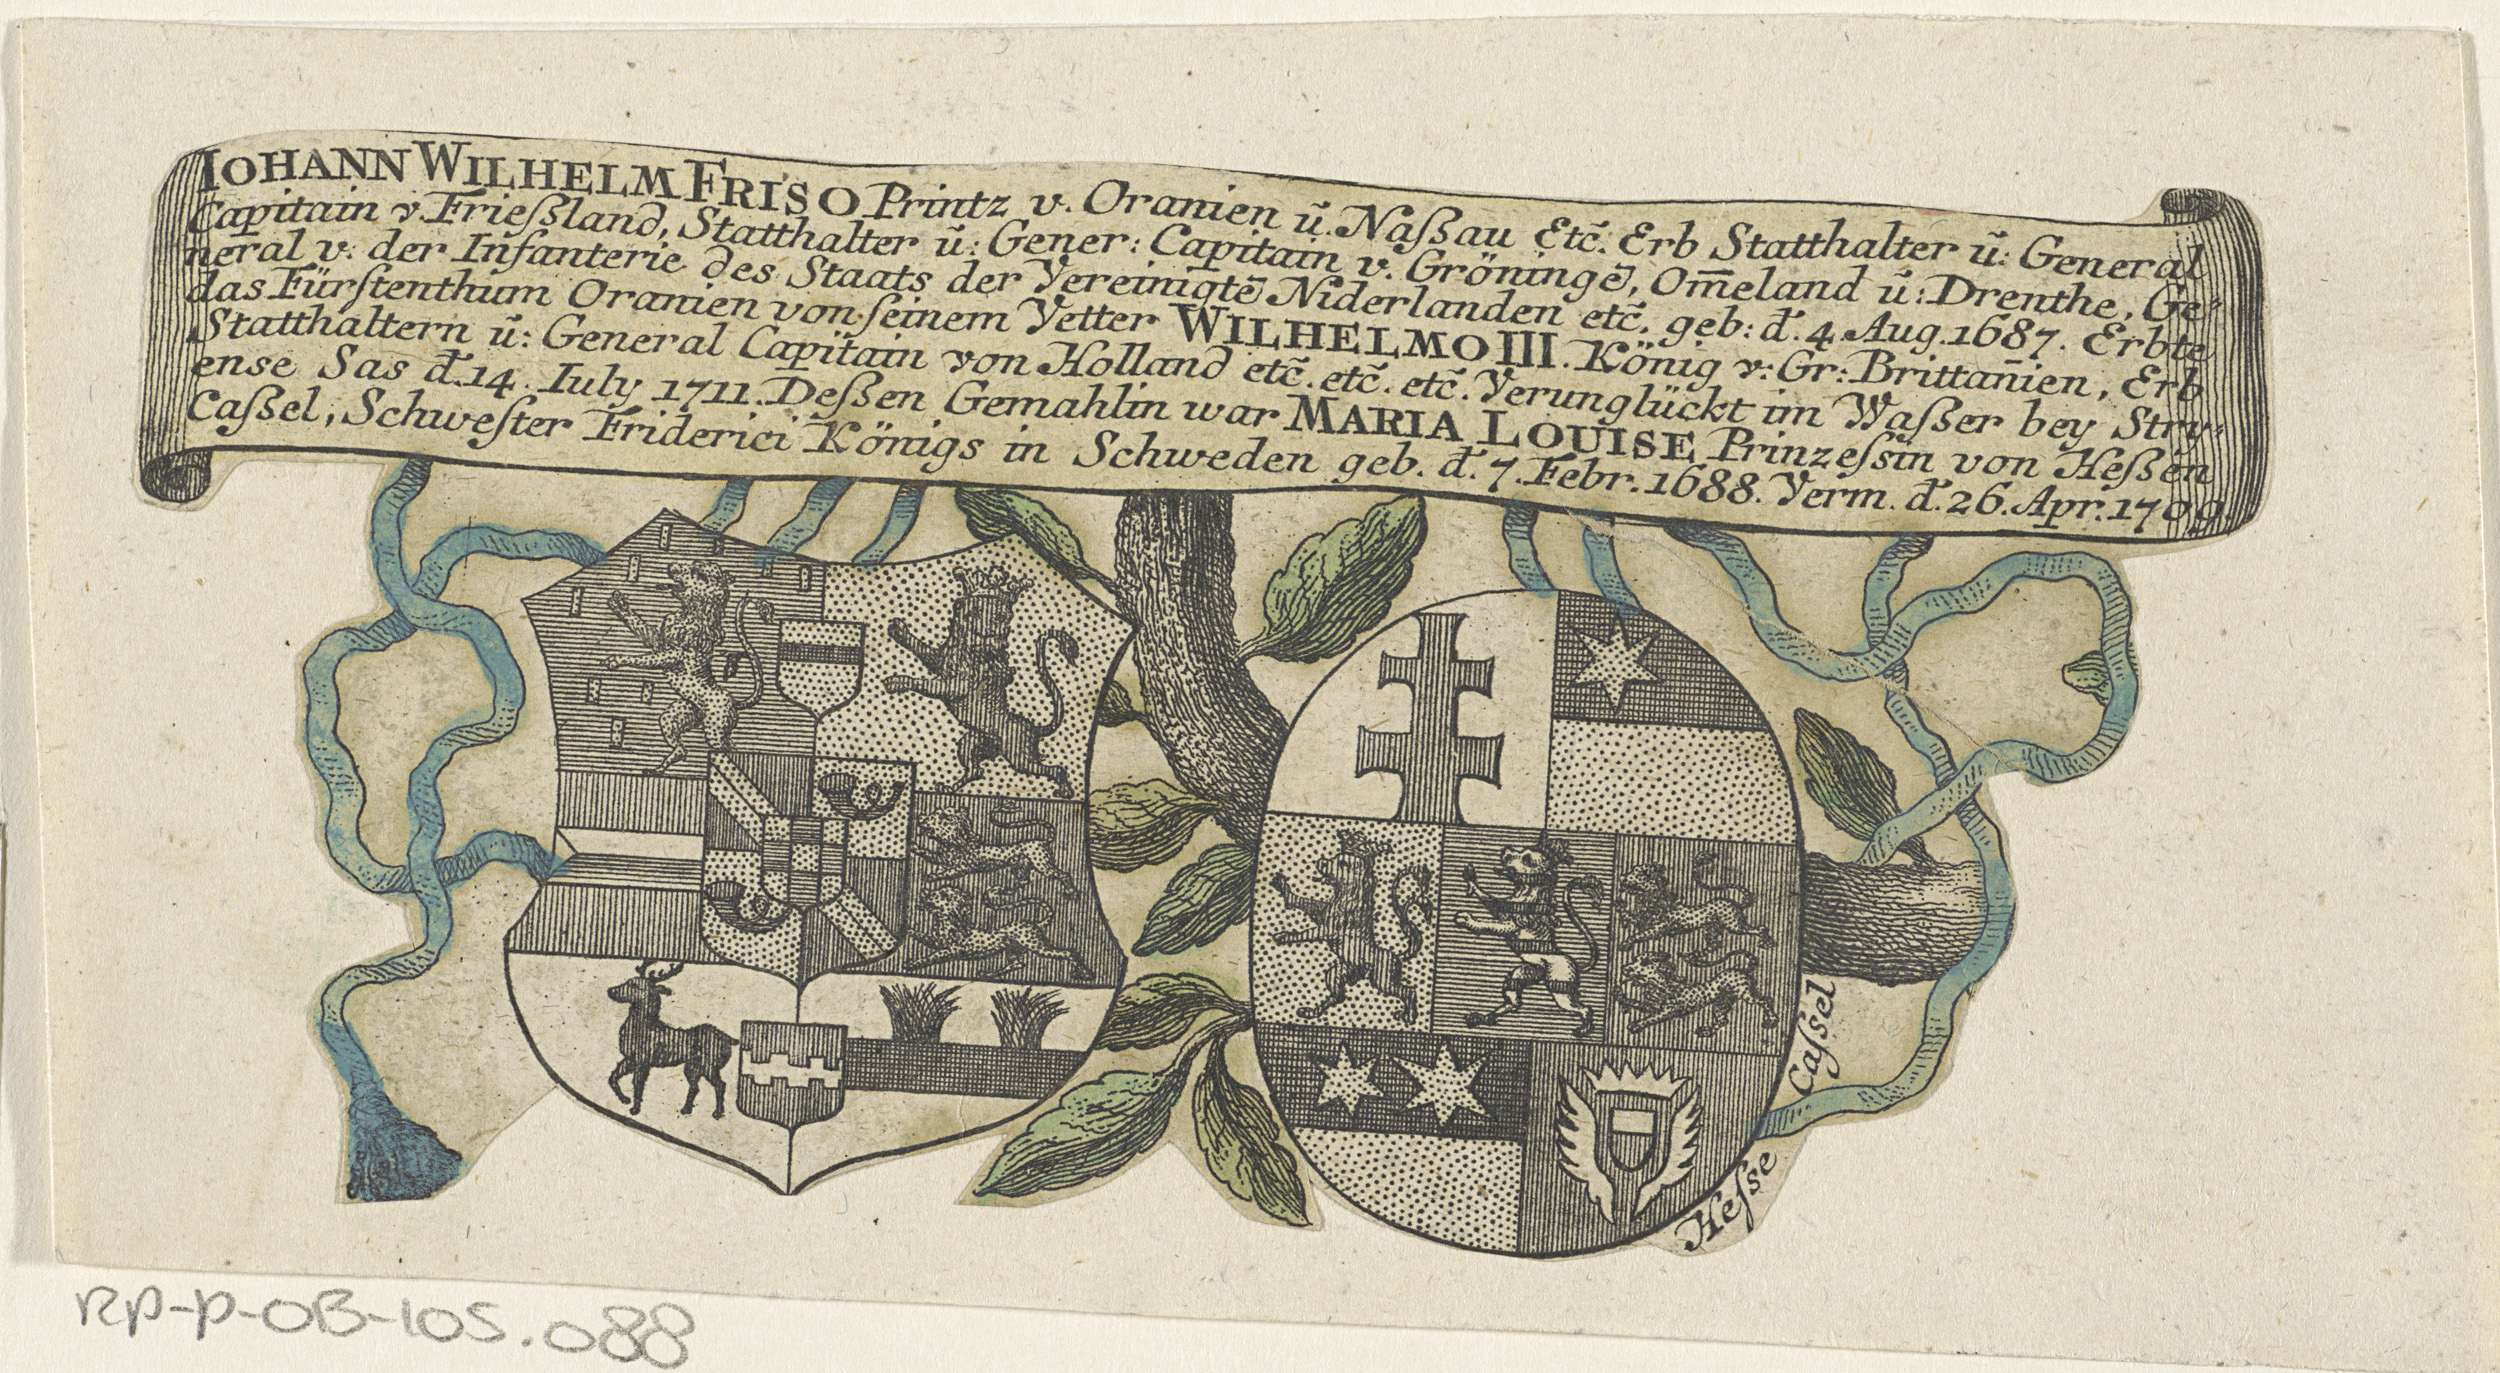 IOHANN WILHELM FRISO Printz v. Oranien ũ. Naßau Etc̃. Erb Statthalter ũ: General
Capitain v. Frießland, Statthalter ũ: Gener: Capitain v. Gröningẽ, Om̄eland ũ: Drenthe, Ge-
neral v: der Infanterie des Staats der Vereinigtẽ Niderlanden etc̃. geb: d. 4. Aug. 1687. Erbte
das Fürſtenthum Oranien von ſeinem Vetter WILHELMO III. König v: Gr: Brittan̄ien, Erb
Statthaltern ũ: General Capitain von Holland etc̃. etc̃. etc̃. Verunglückt im Waßer bey Stry-
ense Sas d. 14. Iuly 1711. Deßen Gemahlin war MARIA LOUISE Prinzeſsin von Heßen
Caßel, Schweſter Friderici Königs in Schweden geb. d. 7. Febr. 1688. Verm. d. 26. Apr. 1709.
Heſse Caſsel
RP-P-OB-105.088